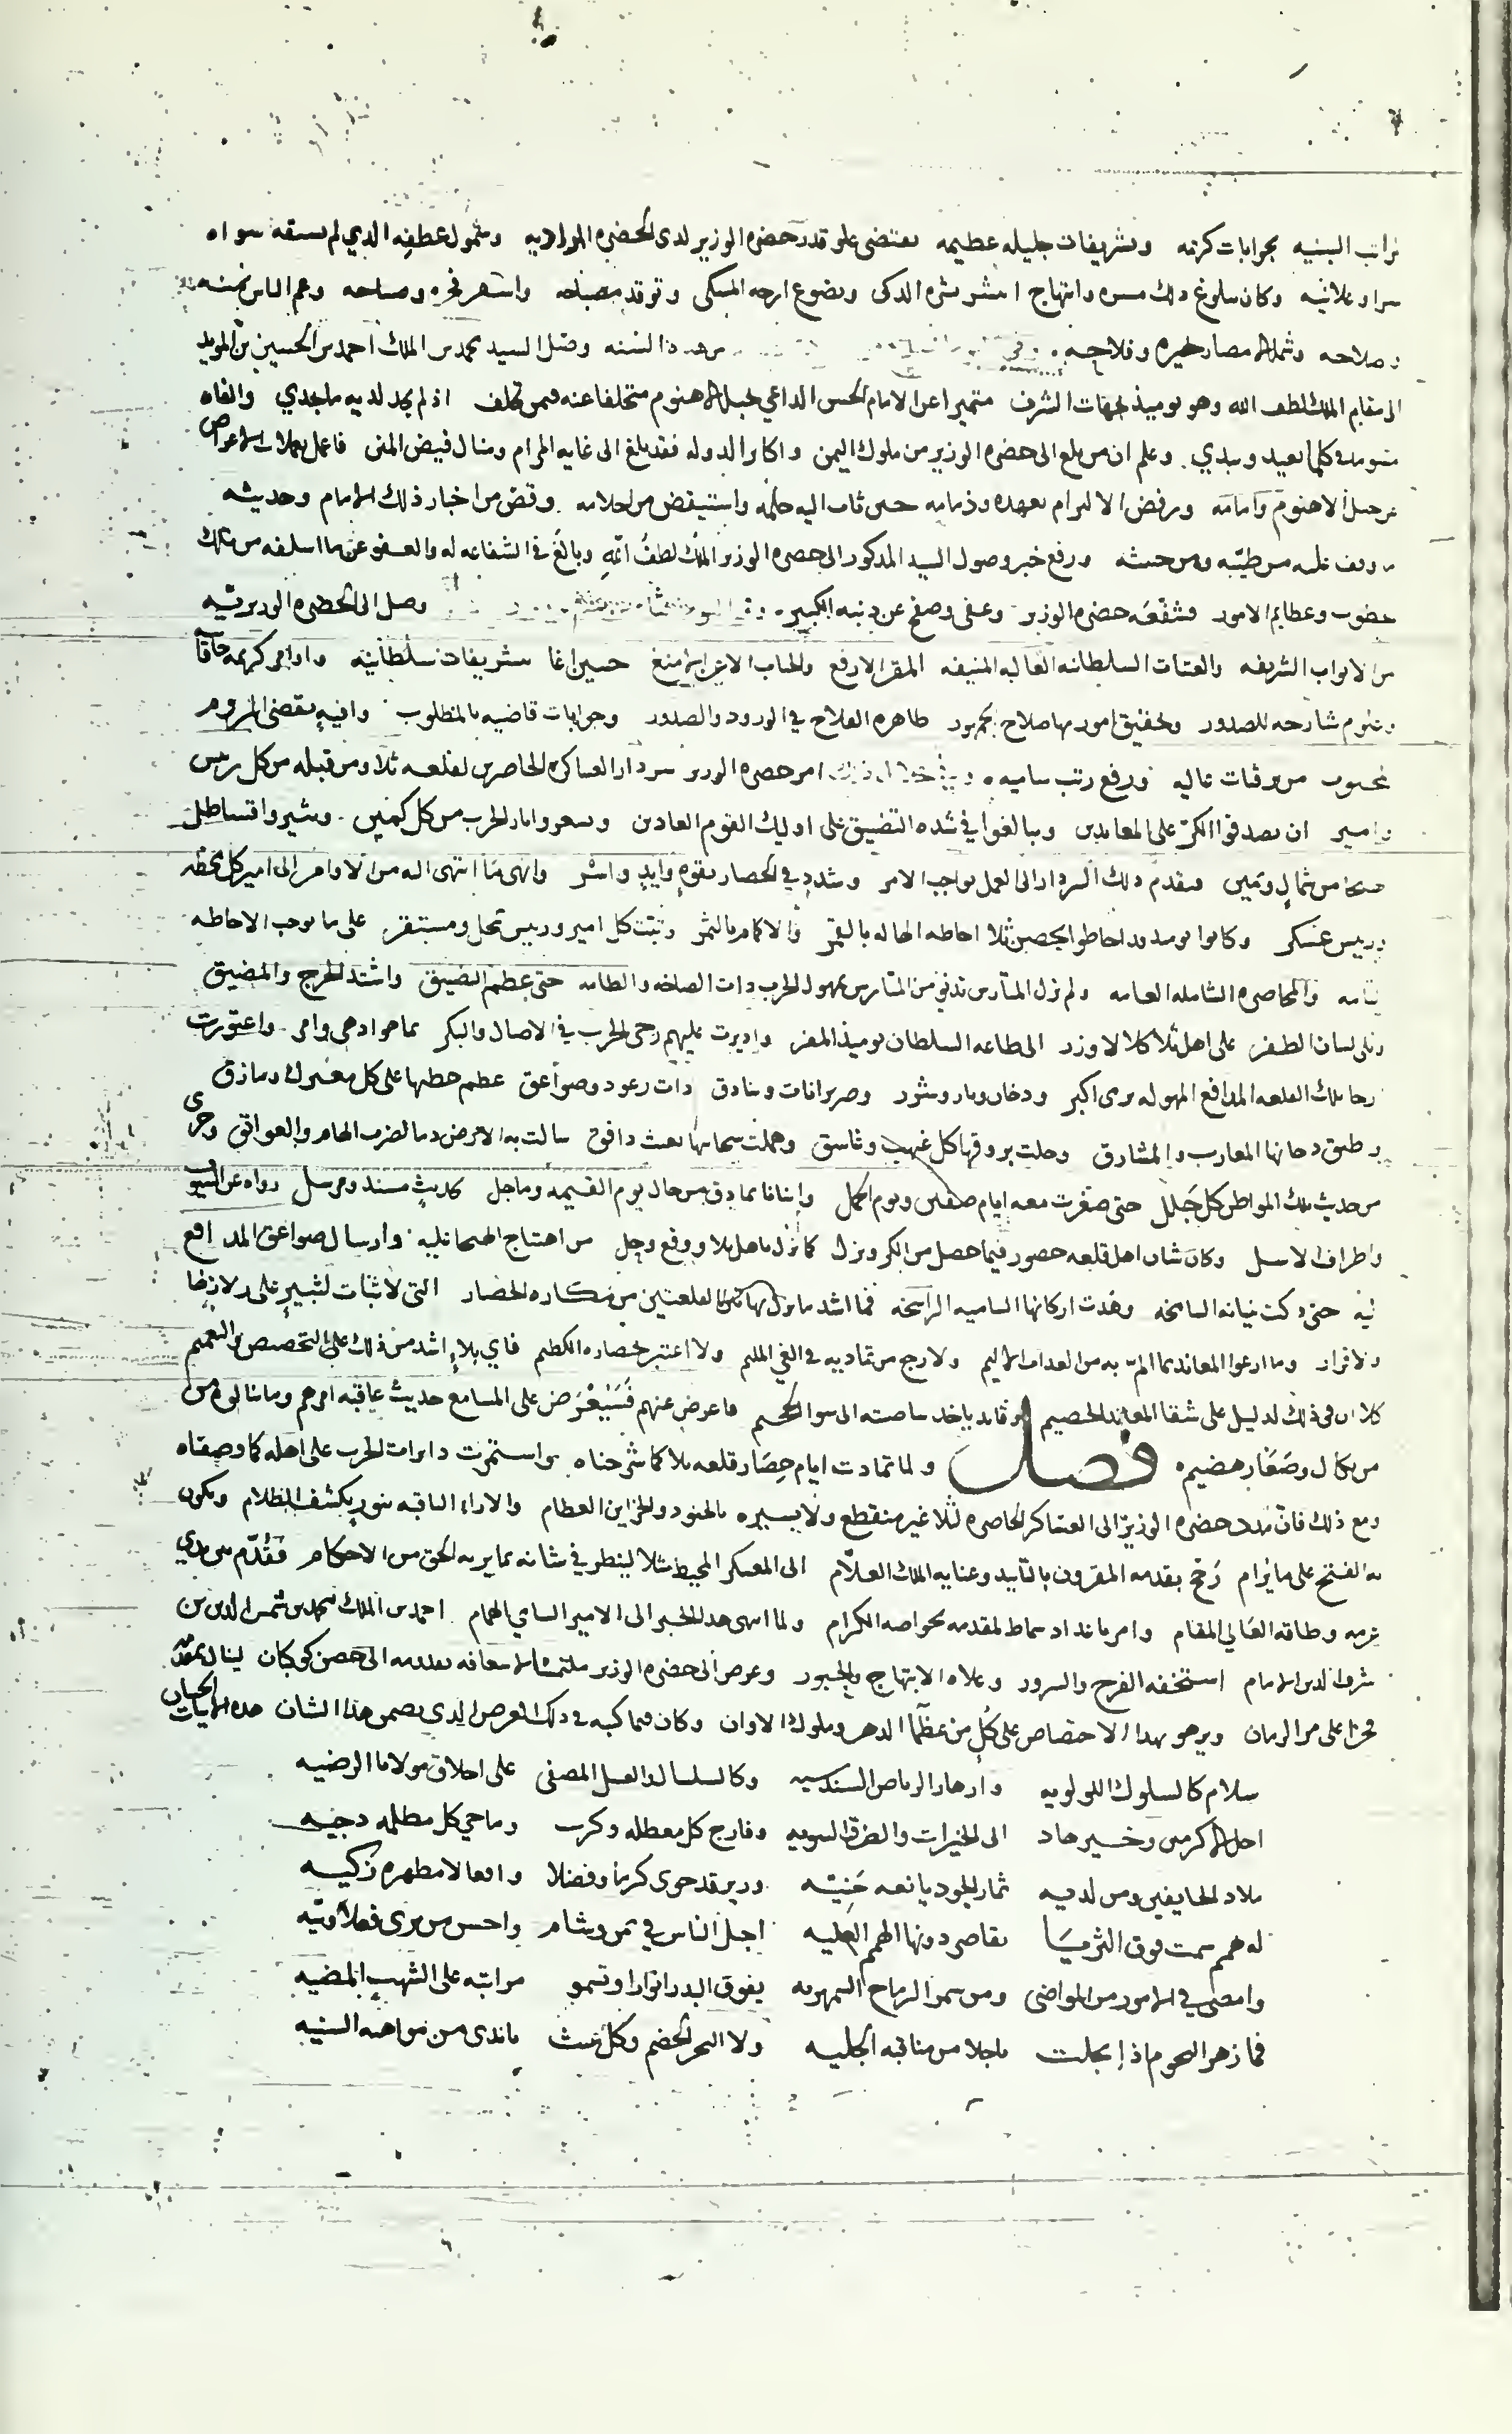 السنيه بجوابات كريمه وتشريفات جليله عظيمه تقتضي علو قدر حضره الوزير لدى الحضره وشمول عطفه الذي لم يسبقه سواه
سرا وعلانيه وكان بلوغ ذلك مسره وابتهاج انتشر نشره الذكى وتضوع ارجه المسكى وتوقد مصباحه واسفر فجره وصباحه وعم الناس
وصلاحه وشمل الامصار خيره وفلاحه هذه السنه وصل السيد محمد بن الملك احمد بن الحسين بن المويد
الى مقام الملك لطف الله وهو يوميذ بجهات الشرف متميزا عن الامام الحسن الداعي بجبل الاهنوم متخلفا عنه فيمن تخلف اذ لم يجد لديه ما يجدي والفاه
كلما يعيد ويبدي وعلم ان من بلغ الى حضره الوزير من ملوك اليمن واكابر الدوله فقد بلغ الى غايه المرام ومنال فيض المنى فاعمل يعملات الاعراض
عن جبل الاهنوم وامامه ورفض الالتزام بعهده وذمامه حتى ثاب اليه حلمه واستيقض من احلامه وقص من اخبار ذلك الامام وحديثه
من طيبه ومن خبيثه ورفع خبر وصول السيد المذكور الى حضره الوزير الملك لطف الله وبالغ في الشفاعه له والعفو عن ما اسلفه من تلك
خطوب وعظايم الامور فشفعه حضره الوزير وعفى وصفح عن ذنبه الكبير وصل الى الحضره الوزيريه
من الابواب الشريفه والعتبات السلطانيه العاليه المنيفه المقر الارفع والجناب الاعز الامنع حسين اغا بتشريفات سلطانيه واوامر كريمه خاقانيه
شارحه للصدور وتحقيق امور بها صلاح الجمهور ظاهره الفلاح في الورود والصدور وجوابات قاضيه بالمطلوب وافيه بمقتضى المروم
من ترقيات عاليه ورفع رتب ساميه وفي خلال ذلك امر حضره الوزير سردار العساكر الحاصرين لقلعه ثلا ومن قبله من كل رئيس
وامير ان يصدقوا الكر على المعاندين ويبالغوا في شده التضييق على اوليك القوم العادين ويسعروا نار الحرب من كل كمين ويثيروا قساطل
من شمال ويمين فتقدم ذلك السردار الى العمل بواجب الامر وشدد في الحصار بقوه وايد واسر وانهى ما انتهى اليه من الاوامر الى امير كل محطه
وريس عسكر وكانوا يوميذ قد احاطوا بحصن ثلا احاطه الهاله بالقمر والاكمام بالثمر وثبت كل امير وريس بمحل ومستقر على ما يوجب الاحاطه
والمحاصره الشامله العامه ولم تزل المتارس تدنو من المتارس بمهول الحرب ذات الصاخه والطامه حتى عظم التضييق واشتد الحرج والمضيق
وتلى لسان الظفر على اهل ثلا كلا لا وزر الى طاعه السلطان يوميذ المفر واديرت عليهم رحى الحرب في الاصال والبكر بما هو ادهى وامر واعتورت
ارجا تلك القلعه المدافع المهوله ترمى اكبر ودخان ونار وشرر وضربزانات وبنادق ذات رعود وصواعق عظم خطبها على كل معترك ومازق
وطبق دخانها المغارب والمشارق وجلت بروقها كل غيهب وغاسق وهملت سحابها بغيث دافق سالت به الارض دما لضرب الهام والعواتق وجرى
من حديث تلك المواطن كل جلل حتى صغرت معه ايام صفين ويوم الجمل وانبانا بما دق من حال يوم القيمه وما جل كحديث مسند ومرسل رواه عن السيوف
واطراف الاسل وكان شان اهل قلعه حضور فيما حصل من الكر ونزل كما نزل باهل ثلا ووقع وجل من اهتياج الهيجا عليه وارسال صواعق المدافع
اليه حتى دكت بنيانه الشامخه وهدت اركانها الساميه الراسخه فما اشد ما نزل بهاتين القلعتين من مكاره الحصار التي لا ثبات لثبير على زلازلها
ولا قرار وما ارعوا المعاند بما الم به من العذاب الاليم ولا رجع من تماديه في الغي المليم ولا اعتبر بحصاره الكظيم فاي بلاء اشد من ذلك على التخصيص والتعميم
كلا ان في ذلك لدليل على شقا المعاند الخصيم وقايد ياخذ بناصيته الى سوا الجحيم فاعرض عنهم فسيعرض على المسامع حديث عاقبه امرهم وما نالوه من
من نكال وصغار هضيمه فصل ولما تمادت ايام حصار قلعه ثلا كما شرحناه واستمرت دايرات الحرب على اهله كما وصفناه
ومع ذلك فان مدد حضره الوزير الى العساكر المحاصره لثلا غير منقطع ولا يسيره بالجنود والخزاين العظام والاراء الثاقبه بنور يكشف الظلام ويكون
به الفتح على ما يرام رجح بقدمه المقرون بالتاييد وعنايه الملك العلام الى المعسكر المحيط بثلا لينظر في شانه بما يريه الحق من الاحكام فقدم بين يدي
عزمه وطاقه العالي المقام وامر بامتداد سماط لمقدمه بخواصه الكرام ولما انتهى هذا الخبر الى الامير السامي الهمام احمد بن الملك محمد بن شمس الدين بن
شرف الدين الامام استخفه الفرح والسرور وعلاه الابتهاج والحبور وعرض الى حضره الوزير ملتمسا لاسعافه بقدومه الى حصن كوكبان لينال بمقدمه
فخرا على مر الزمان ويزهو بهذا الاختصاص على كل من عظما الدهر وملوك الاوان وكان فيما كتبه في ذلك العرض الذي يضمن هذا الشان هذه الابيات الحسان
سلام كالسلوك اللولويه وازهار الرياض السندسيه وكالسلسال والعسل المصفى على اخلاق مولانا الرضيه
اجل الاكرمين وخير هاد الى الخيرات والطرق السويه وفارج كل معظله وكرب وماحي كل مظلمه دجيه
ملاذ الخايفين ومن لديه ثمار الجود يانعه جنيه وزير قد حوى كرما وفضلا وافعالا مطهره زكيه
له همم سمت فوق الثريا تقاصر دونها الهمم العليه اجل الناس في يمن وشام واحسن من يرى فعلا ونيه
وامضى في الامور من المواضى ومن سمر الرماح السمهريه يفوق البدر انوارا وتسمو مراتبه على الشهب المضيه
فما زهر النجوم اذا تجلت باجلا من مناقبه الجليه ولا البحر الخضم وكل غيث باندى من مواهبه السنيه